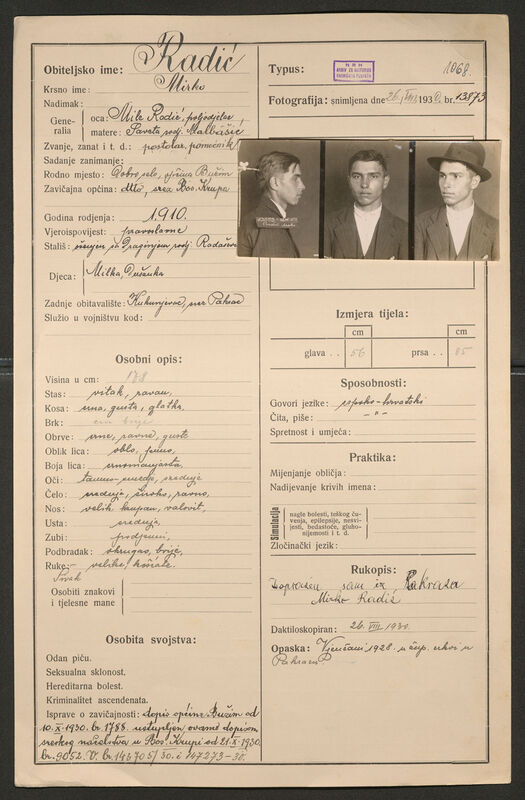 Obiteljsko ime: Radić
Krsno ime: Mirko
Nadimak:
Generalia
oca: Mile Radić, poljodjelac,
matere: Saveta rodj. Malbašić
Zvanje, zanat i t. d.: postolar. pomoćnik
Sadanje zanimanje:
Rodno mjesto: Dobro selo, općina Bužim
Zavičajna općina: srez Bos. Krupa
Godina rodjenja: 1910.
Vjeroispovijest: pravoslavne
Stališ: oženjen sa Draginjom rodj.
Djeca: Milka, Dušanka
Zadnje obitavalište: Kukunjevac, srez Pakrac
Služio u vojništvu kod:
Osobni opis:
Visina u cm: 178
Stas: vitak, ravan,
Kosa: crna, gusta, glatka,
Brk: brije
Obrve: crne, ravne, guste
Oblik lica: oblo, puno,
Boja lica: crnomanjasta
Oči: tamno-smeđe, srednje
Čelo: srednje, široko, ravno,
Nos: velik, krupan, valovit,
Usta: srednja,
Zubi: potpuni,
Podbradak: okrugao, brije,
Ruke: velike, košćate.
Osobiti znakovi i tjelesne mane
Osobita svojstva:
Odan piću.
Seksualna sklonost.
Hereditarna bolest.
Kriminalitet ascendenata.
Isprave o zavičajnosti: dopis općine Bužim od
10.X.1930. br. 1788 ustupljen ovamo dopisom
sreskog načelstva u Bos. Krupi od 21.X.1930.
br. 9052. V. br. 146705/30. i 147273-30.
Typus:
1068.
Fotografija: snimljena dne 26. VIII 1930. br. 13873
Izmjera tijela:
cm cm
glava . . 56 prsa . . 85
Sposobnosti:
Govori jezike: srpsko-hrvatski
Čita, piše: -"-
Spretnost i umjeća:
Praktika:
Mijenjanje obličja:
Nadijevanje krivih imena:
Simulacija
nagle bolesti, teškog čuvenja, epilepsije, nesvijesti, bedastoće, gluhonijemosti i t. d.
Zločinački jezik:
Rukopis:
Dopraćen sam iz Pakraca
Mirko Radić
Daktiloskopiran: 26. VIII. 1930.
Opaska: Vjenčani 1928. u crkvi u
Pakracu